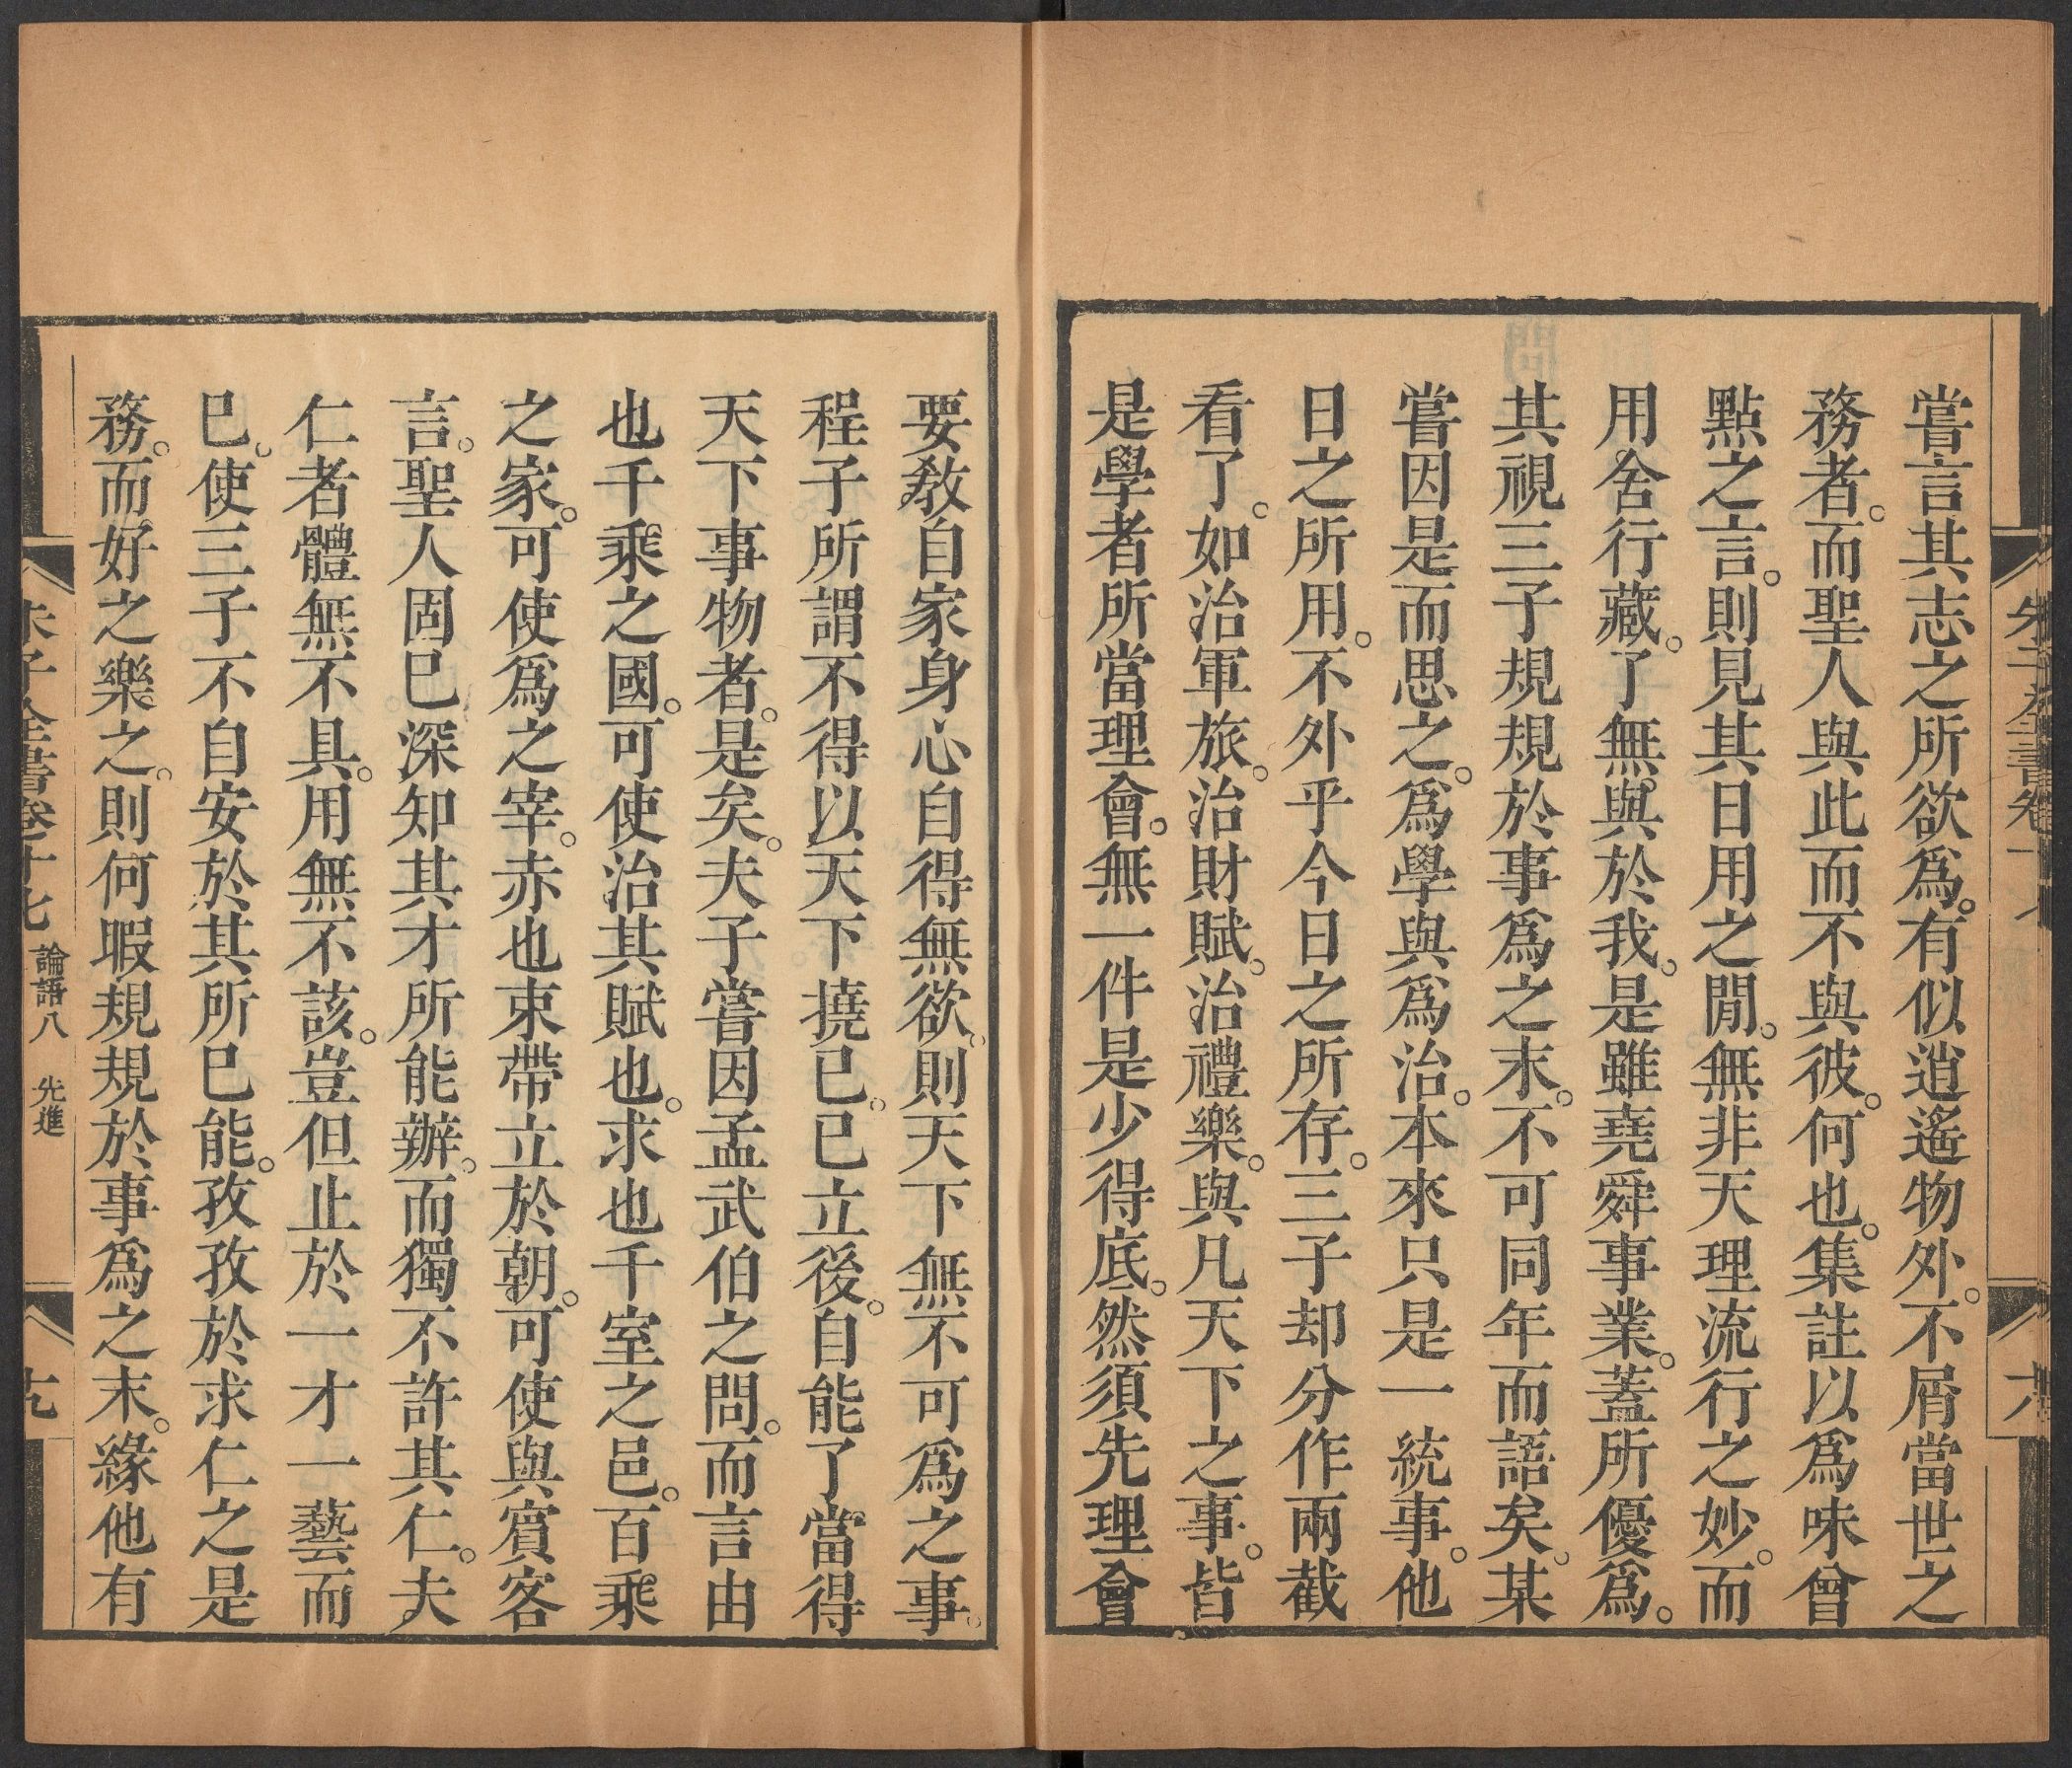 嘗言其志之所欲爲。有似逍遙物外。不屑當世之
務者。而聖人與此而不與彼。何也。集註以爲味曾
點之言。則見其日用之閒。無非天理流行之妙。而
用舍行藏。了無與於我。是雖堯舜事業。蓋所優爲。
其視三子規規於事爲之末。不可同年而語矣。某
嘗因是而思之。爲學與爲治。本來只是一統事。他
日之所用。不外乎今日之所存。三子却分作兩截
看了。如治軍旅。治財賦。治禮樂。與凡天下之事。皆
是學者所當理會。無一件是少得底。然須先理會
要敎自家身心自得無欲。則天下無不可爲之事。
程子所謂不得以天下撓已。已立後。自能了當得
天下事物者。是矣。夫子嘗因孟武伯之問。而言由
也千乘之國。可使治其賦也。求也千室之邑。百乘
之家。可使爲之宰。赤也束帶立於朝。可使與賓客
言。聖人固已深知其才所能辦。而獨不許其仁。夫
仁者體無不具。用無不該。豈但止於一才一藝而
已。使三子不自安於其所已能。孜孜於求仁之是
務。而好之樂之。則何暇規規於事爲之末。緣他有
朱子全書卷十七 論語八 先進
十九